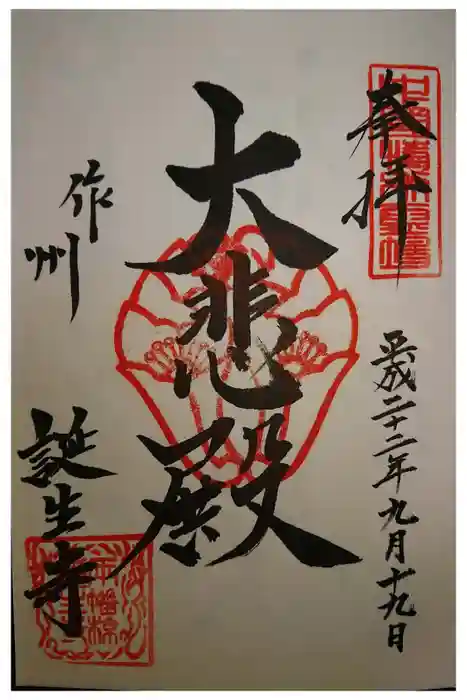 奉拝
平成二十二年九月十九日
大悲殿
作州
誕生寺